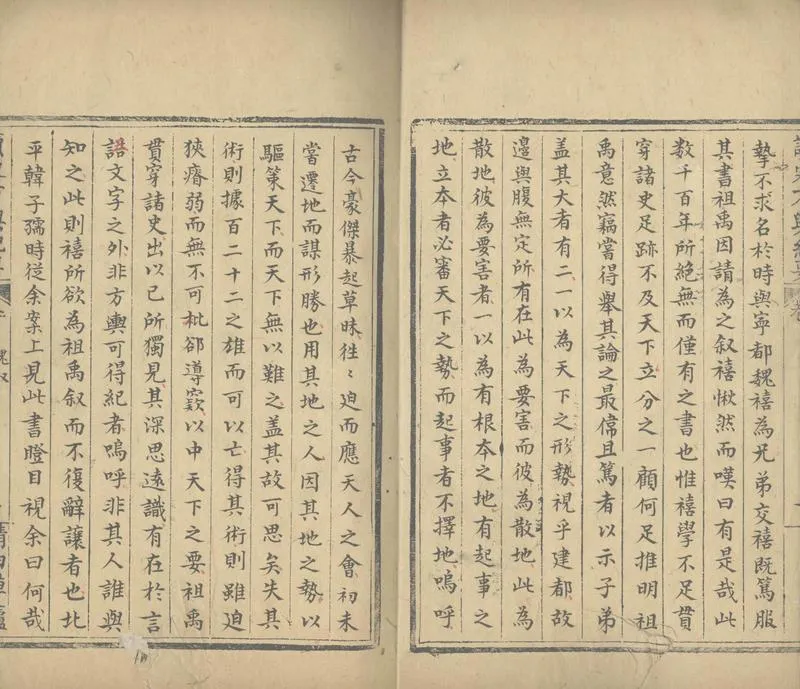 摯不求名於時與寧都魏禧為兄弟交禧既篤服
其書祖禹因請為之叙禧愀然而嘆曰有是哉此
数千百年所絕無而僅有之書也惟禧學不足貫
穿諸史足跡不及天下立分之一顧何足推明祖
禹意然竊嘗得舉其論之最偉且篤者以示子弟
盖其大者有二一以為天下之形勢視乎建都故
邊與腹無定所有在此為要害而彼為散地此為
散地彼為要害者一以為有根本之地有起事之
地立本者必審天下之勢而起事者不擇地嗚呼
古今豪傑暴起草昧徃〻迫而應天人之會初未
當遷地而謀形勝也用其地之人因其地之勢以
驅策天下而天下無以難之盖其故可思矣失其
術則據百二十二之雄而可以亡得其術則雖迫
狹瘠弱而無不可枇郤導窾以中天下之要祖禹
貫穿諸史出以己所獨見其深思遠識有在於言
語文字之外非方輿可得紀者嗚呼非其人誰與
知之此則禧所欲為祖禹叙而不復辭讓者也北
平韓子孺時從余案上見此書瞪目視余曰何哉
魏叙